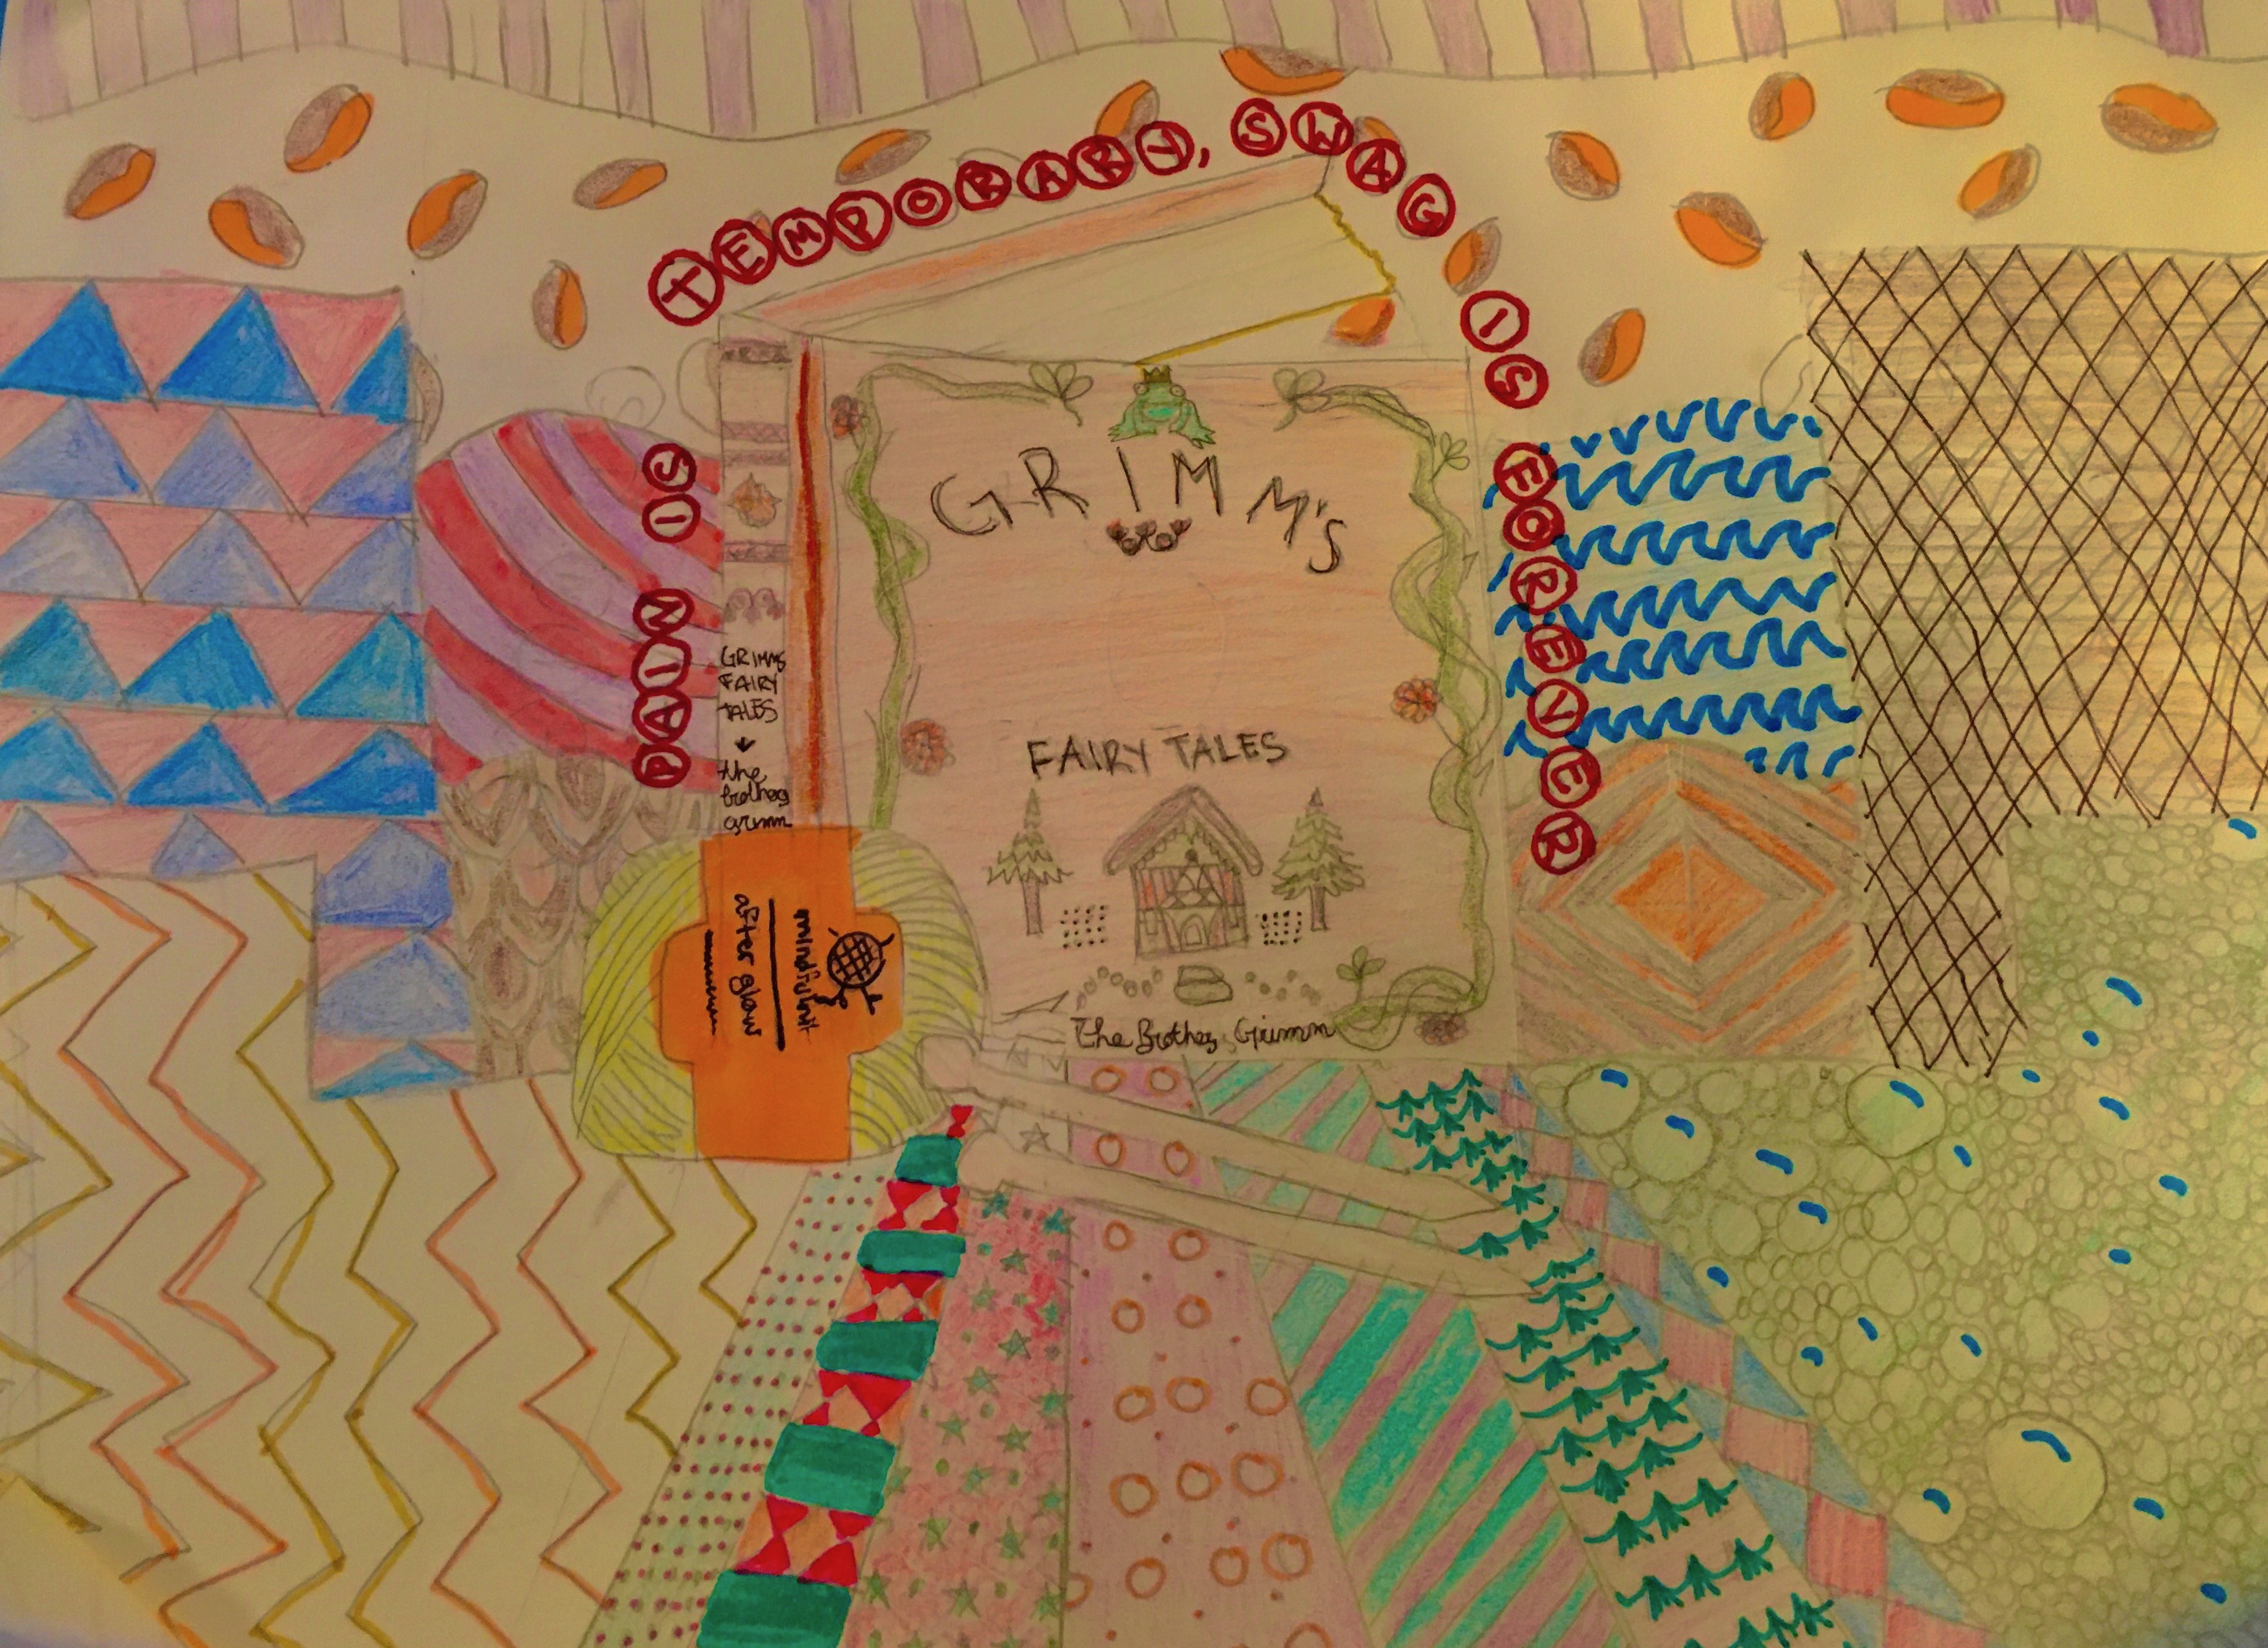 PAIN IS TEMPORARY, SWAG IS FOREVER
GRIMM'S
FAIRY TALES
The Brothers Grimm
GRIMMS
FAIRY
TALES
the
brothers
grimm
mindful knit
after glow